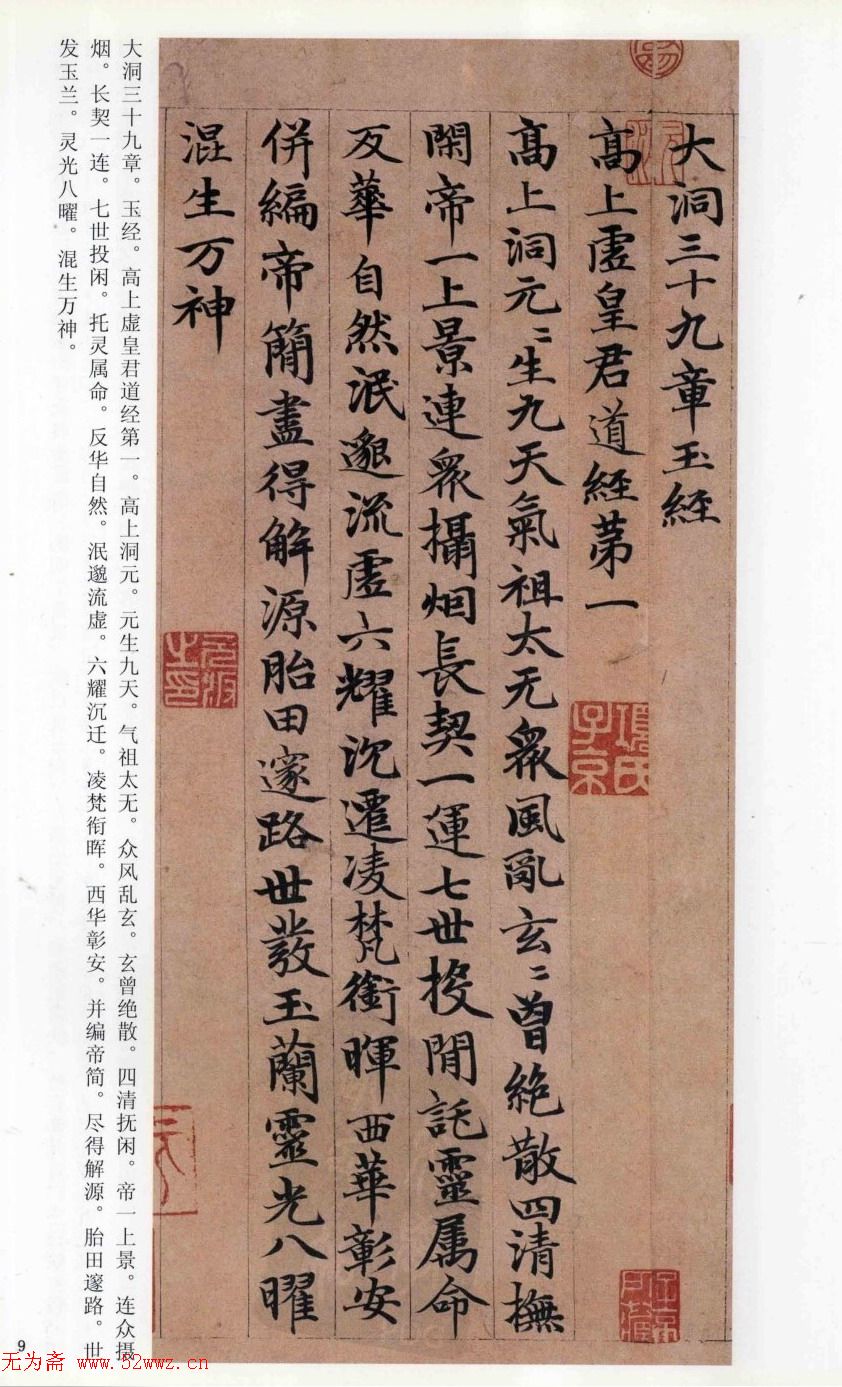 大洞三十九章玉經
高上虛皇君道經苐一
高上洞元〻生九天氣祖太无衆風亂玄〻曾絶散四清撫
閑帝一上景連衆攝烟長契一運七世投閒託靈属命
反華自然泯邈流虛六耀沉遷凌梵銜暉西華彰安
併編帝簡盡得解源胎田邃路世發玉蘭靈光八曜
混生万神
項氏子京
大洞三十九章。玉经。高上虚皇君道经第一。高上洞元。元生九天。气祖太无。众风乱玄。玄曾绝散。四清抚闲。帝一上景。连众摄
烟。长契一连。七世投闲。托灵属命。反华自然。泯邈流虚。六耀沉迁。凌梵衔晖。西华彰安。并编帝简。尽得解源。胎田邃路。世
发玉兰。灵光八曜。混生万神。
9
无为斋 www.52wwz.cn